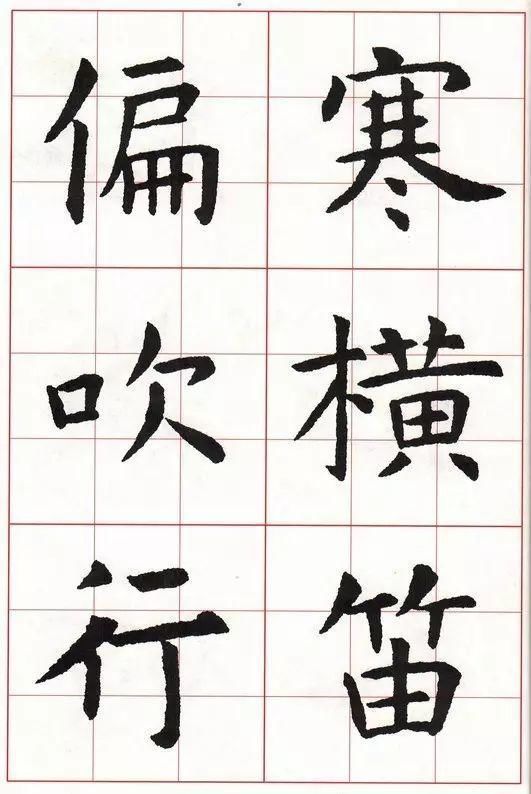 寒横笛
偏吹行